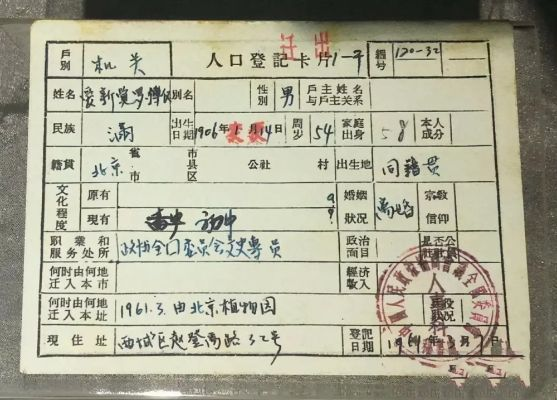 迁出
戶別 机关 人口登記卡片1-于 編号 120-32
姓名 爱新覚罗·溥仪 別名 性別 男 戶主姓名与戶主关系
民族 满 出生日期 1906年1月14日 周岁 54 家庭出身 本人成分
籍貫 北京 省市 市县区 公社 村 出生地 同籍贯
文化程度 原有 婚姻狀况 离婚 宗教信仰
現有 初中
职業和服务处所 政协全囗委员会文史專员 政治面目 是否公社社員
何时由何地迁入本市 經济收入
何时由何地迁入本址 1961.3.由北京植物园
現住址 西城区赵登禹路32号 登記日期 1961年3月7日